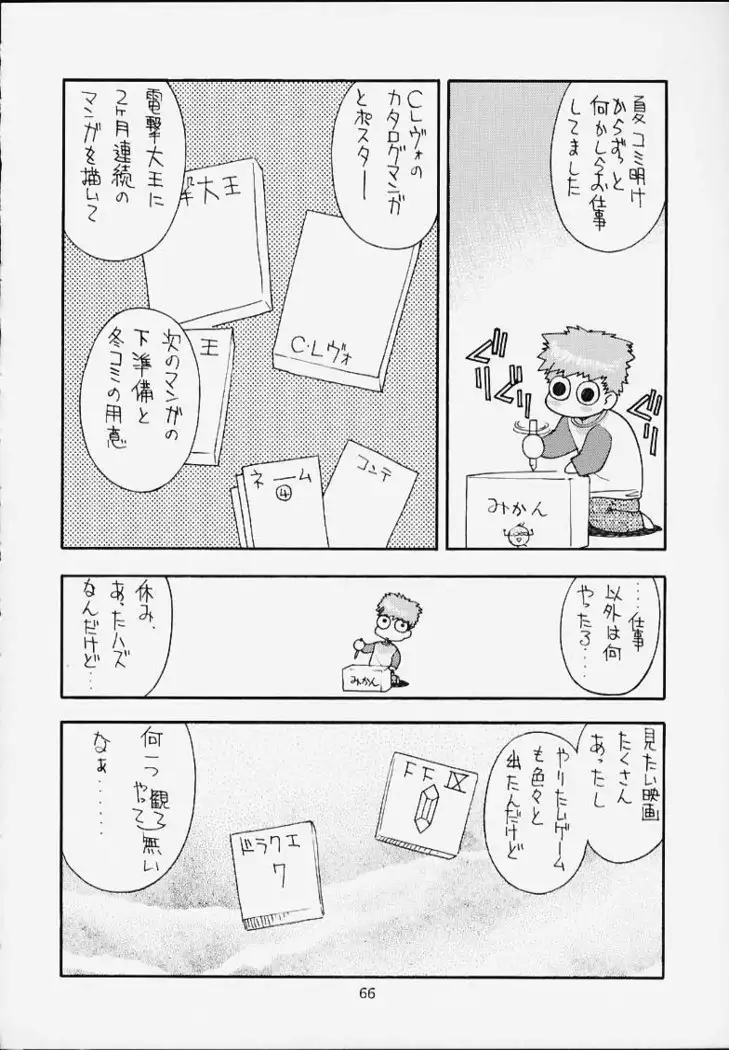 夏コミ明け
からずっと
何かしらお仕事
してました
グリグリ
グリグリ
みかん
C.Lヴォの
カタログマンガ
とポスター
電撃大王に
2ヶ月連続の
マンガを描いて
撃大王
C・Lヴォ
王
次のマンガの
下準備と
冬コミの用意
コンテ
ネーム
④
....仕事
以外は何
やったろ....
みかん
休み、
あったハズ
なんだけど...
見たい映画
たくさん
あったし
やりたいゲーム
も色々と
出たんだけど
FFⅨ
ドラクエ
7
何一つ観て
やって無い
なぁ......
66